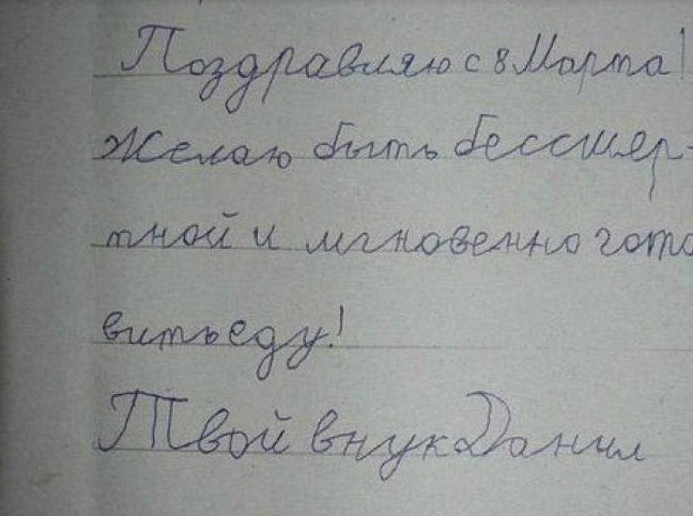 Поздравляю с 8 Марта!
Желаю быть бессмер-
тной и мгновенно гото
вить еду!
Твой внук Данил